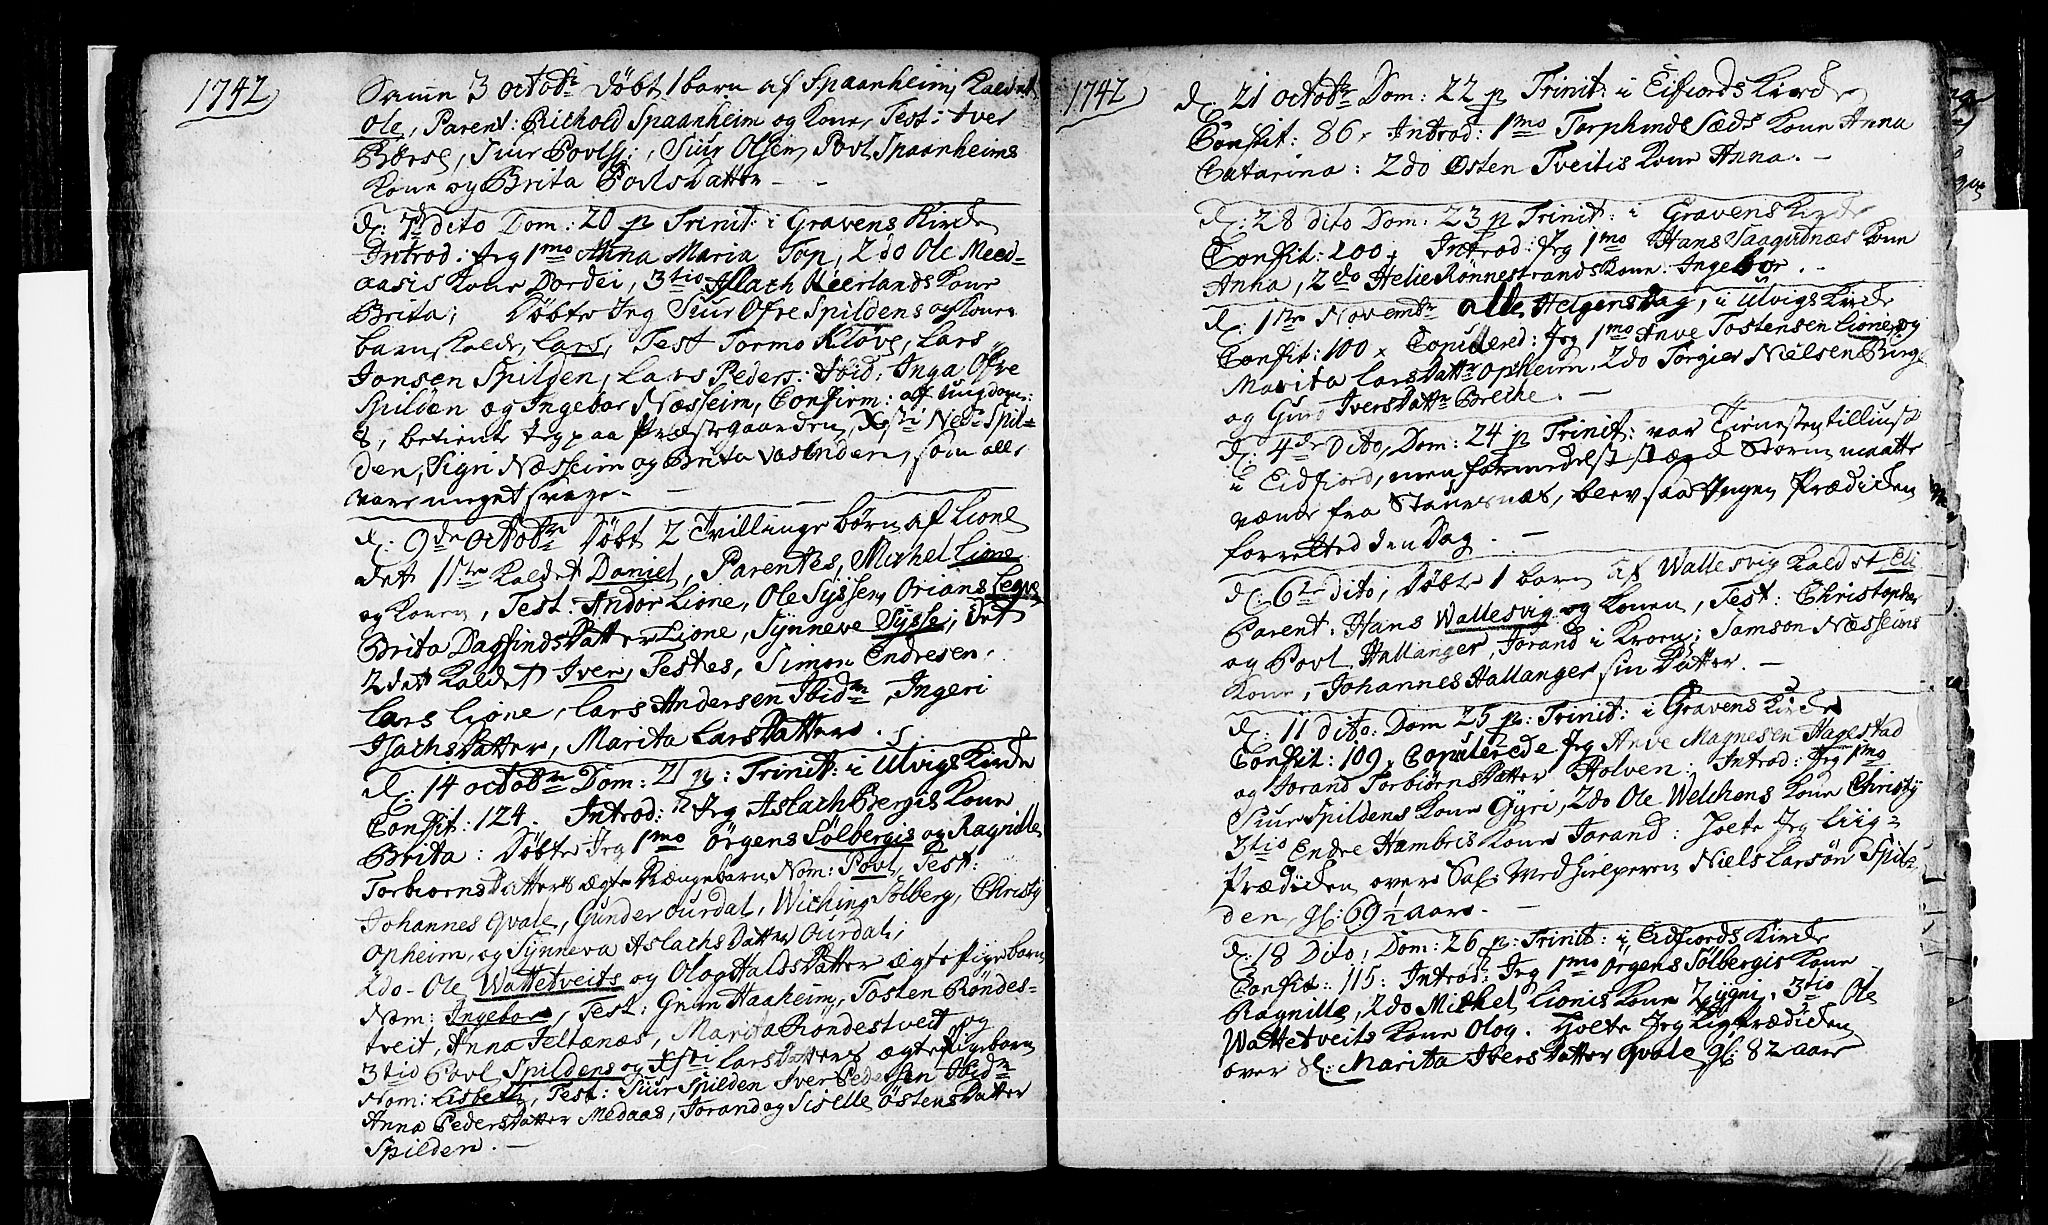 1742
Samme 3 octobr døbt 1 barn af Spaanheim, Kaldet
Ole, Parent: Richold Spaanheim og Kone, Test: Iver
Børse, Siur Povels:, Siur Olsen, Povl Spaanheims
Kone og Brita Povlsdatter - -
d: 7de dito Dom: 20 p Trinit: i Gravens Kirche
Introd: Jeg 1mo Anna Maria Top, 2do Ole Meed=
aasis Kone Dordei, 3tio Aslach Neerlands Kone
Brita; Døbte Jeg Siur Øfre Spildens og Kones
barn, Kaldt, Lars, Test Tormo Kløve, Lars
Jonsen Spilden, Lars Peders: Ibid: Inga Øfre
Spilden og Ingebor Næsseim, Confirm: aff ungdom:
8, betiente Jeg paa Præstegaarden, Xsti Ned= Spil=
den, Sigri Næsseim og Brita Vasenden, som alle
vare meget svage. -
d: 9de Octobr Døbt 2 Tvillinge børn af Lione
det 1ste Kaldet Daniel, Parentes, Michel Lione
og Konen, Test: Indor Lione, Ole Syssen, Orians Legve
Brita Dagfinds datter Lione, Synneve Sysse, det
2det Kaldet Iver, Testes, Simon Endresen,
Lars Lione, Lars Andersen Ibidm, Ingeri
Isachsdatter, Marita Larsdatter. -
d: 14 octobr Dom: 21 p: Trinit: i Ulvigs Kirche
Confit: 124. Introd: Jeg Aslach Bergis Kone
Brita: Døbte Jeg 1mo Ørgens Sølbergis og Ragnille
Torbiørnsdatters ægte Drengebarn Nom: Povl, Test:
Johannes qvale, Gunder Ourdal, Wiching Sølberg, Christy
Opheim, og Synneva Aslachsdatter Ourdal;
2do - Ole Wattetveits og Olog Haldsdatter ægte Pigebarn
Nom: Ingebor, Test: Gnim Haaheim, Tosten Røndes=
tveit, Anna Jeltenæs, Marita Røndestveit og
3tio Povl Spildens og Xsti Larsdatters ægte Pigebarn
Nom: Lisbeth, Test: Siur Spilden Iver Pedersen Ibidm
Anna Pedersdatter Medaas, Torand og Siselle Østensdatter
Spilden. -
1742
d: 21 octobr Dom: 22 p Trinit: i Eifiords Kirche
Confit: 86. Introd: 1mo Torphinde Sæds Kone Anna
Catarina: 2do Østen Tveitis Kone Anna. -
d: 28 dito Dom: 23 p Trinit: i Gravens Kirche
Confit: 200. Introd: Jeg 1mo Hans Saaqvitnæs Kone
Anna, 2do Helie Rønnestrands Kone: Ingebor. -
d: 1ste Novembr alle Helgens dag, i Ulvigs Kirche
Confit: 100. Copulered: Jeg 1mo Anve Tostensen Lione og
Marita Larsdattr Opheim. 2do Torgier Nielsen Birge
og Guro Iversdattr Breche. -
d: 4de Dito, Dom: 24 p Trinit: var Tienesten tillinst
i Eidfiord, men formedelst stærck Storm maatte
vænde fra Stauersnæs, blev saa Ingen Prædichen
forretted den dag. -
d: 6te dito, Døbt 1 barn af Wallesvig Kaldet Eli
Parent. Hans Wallesvig og Konen, Test: Christopher
og Povl Hallanger, Torand i Kroen; Samson Næsseims
Kone, Johannes Hallanger sin Datter. -
d: 11 dito: Dom 25 p: Trinit: i Gravens Kirche
Confit: 109. Copulerede Jeg Anve Magnesen Hagestad
og Torand Torbiørnsdatter Holven: Introd: Jeg 1mo
Siur Spildens Kone Gyri, 2do Ole Welchens Kone Christy
3tio Endre Hambris Kone Torand: Holte Jeg Liig=
Prædichen over Sal: Medhielperen Niels Larsøn Spil=
den, gl: 69 1/2 aars. -
d: 18 Dito; Dom: 26 p: Trinit: i Eidfiords Kirche
Confit: 115: Introd: Jeg 1mo Ørgens Sølbergis Kone
Ragnille, 2do Michel Lionis Kone Zygni. 3tio Ole
Wattetveits Kone Olog. Holte Jeg Ligprædichen
over S: Marita Iversdatter Qvale gl: 82 aar